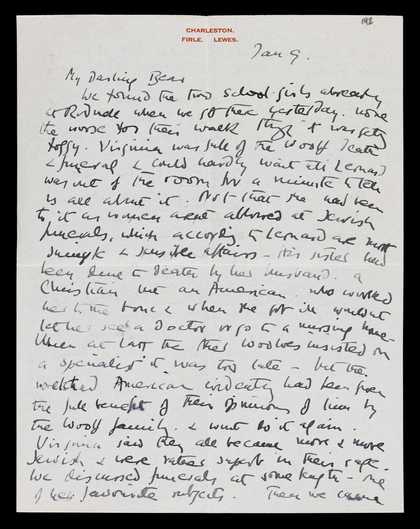 CHARLESTON,
FIRLE, LEWES.
Jan 9.
My Darling Bear
We found the two school girls already
at Rodmell when we got there yesterday. none
the worse for their walk though it was pretty
foggy. Virginia was full of the Woolf death
& funeral & could hardly wait till Leonard
was out of the room for a minute to tell
us all about it. Not that she had been
to it as women arent allowed at Jewish
funerals, which according to Leonard are most
simple & sensible affairs. His sister had
been done to death by her husband. a
Christian but an American. who worked
her to the bone & when she got ill wouldnt
let her see a Doctor or go to a nursing home.
When at last the other Woolves insisted on
a specialist it was too late - but the
wretched American evidently had been given
the full benefit of their opinions of him by
the Woolf family. & wont do it again.
Virginia said they all became more & more
Jewish & were rather superb in their rage.
We discussed funerals at some length - one
of her favourite subjects. Then we came